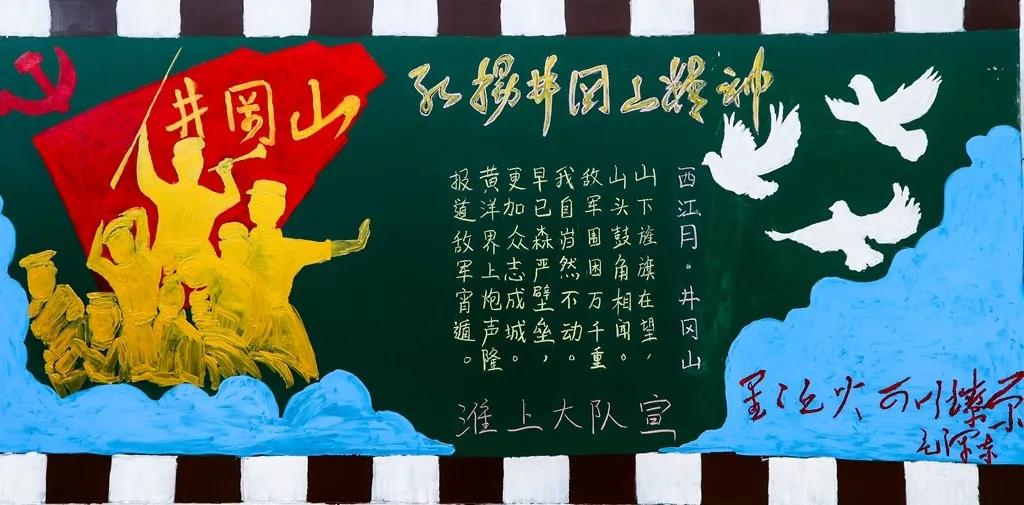 井岡山
弘揚井冈山精神
西江月·井冈山
山下旌旗在望，
山头鼓角相闻。
敌军围困万千重
我自岿然不动。
早已森严壁垒，
更加众志成城。
黄洋界上炮声隆
报道敌军宵遁。
淮上大队宣
星星之火可以燎原
毛泽东